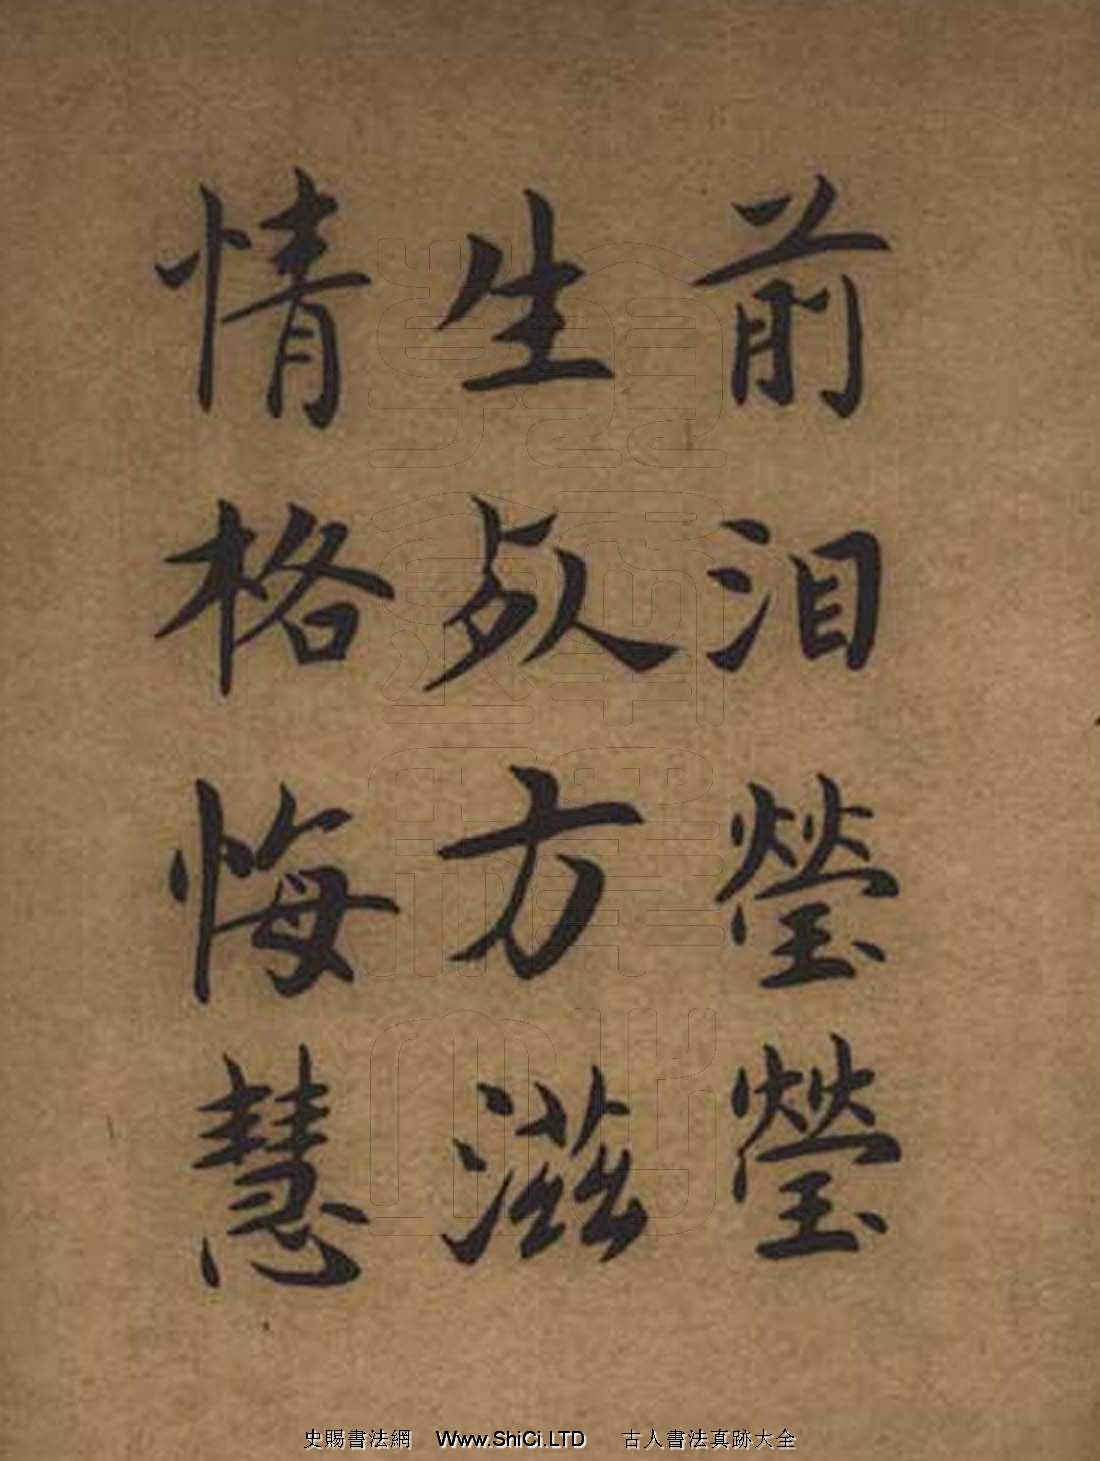 前泪瑩瑩
生处方滋
情格悔慧
史賜書法網 Www.ShiCi.LTD 古人書法真跡大全